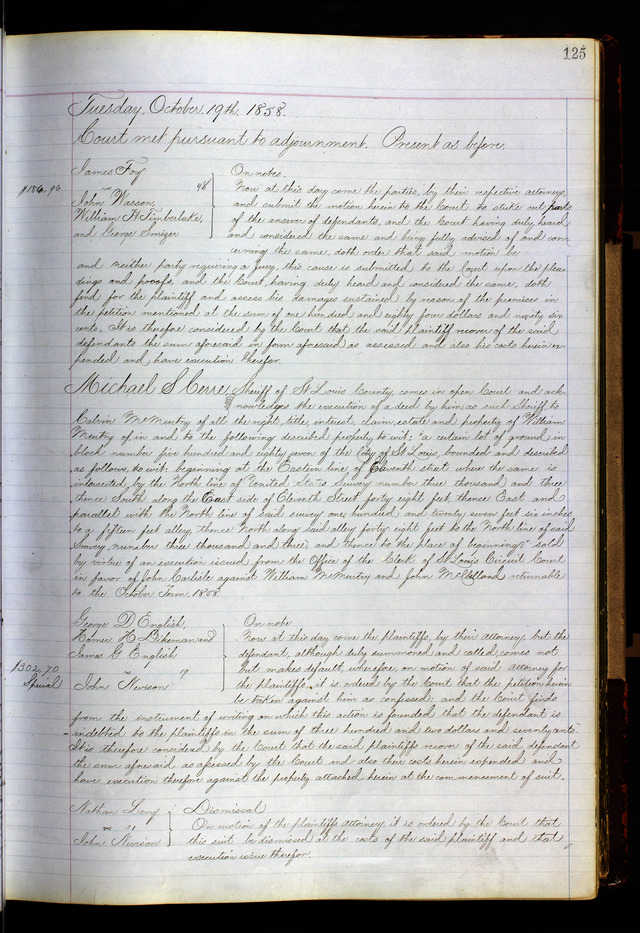 125
Tuesday, October 19th, 1858.
Court met pursuant to adjournment. Present as before.
James Foy
vs 48
John Wasson,
William H Timberlake,
and George Smizer
$184.96
On notes.
Now at this day come the parties by their respective attorneys,
and submit the motion herein to the Court to strike out parts
of the answer of defendants, and the Court having duly heard
and considered the same and being fully advised of and con-
cerning the same, doth order that said motion be
and neither party requiring a jury, this cause is submitted to the Court upon the plea-
dings and proofs, and the Court, having duly heard and considered the same, doth
find for the plaintiff and assess his damages sustained by reason of the premises in
the petition mentioned at the sum of one hundred and eighty four dollars and ninety six
cents. It is therefore considered by the Court that the said plaintiff recover of the said
defendants the sum aforesaid in form aforesaid as assessed and also his costs herein ex-
pended and have execution therefor.
Michael S Cerre, Sheriff of St Louis County, comes in open Court and ack-
nowledges the execution of a deed by him as such Sheriff to
Calvin McMurtry of all the right, title, interest, claim, estate and property of William
Murtry of in and to the following described property to wit: "a certain lot of ground in
block number five hundred and eighty seven of the City of St Louis, bounded and described
as follows, to wit: beginning at the Eastern line of Eleventh street where the same is
intersected, by the North line of United States Survey number three thousand and three
thence South along the East side of Eleventh Street forty eight feet thence East and
parallel with the North line of said survey one hundred and twenty seven feet six inches
to a fifteen feet alley, thence North along said alley forty eight feet to the North line of said
Survey, number three thousand and three, and thence to the place of beginning:" sold
by virtue of an execution issued from the Office of the Clerk of St Louis Circuit Court
in favor of John Carlisle against William McMurtry and John McClelland, returnable
to the October Term 1858.
George D English,
Homer H Bikeman and
James G English
vs 17
John Newison
$302.70
Special
On note
Now at this day come the plaintiffs, by their attorney, but the
defendant, although duly summoned and called, comes not
but makes default, wherefore, on motion of said attorney for
the plaintiffs, it is ordered by the Court that the petition herein
be taken against him as confessed, and the Court finds
from the instrument of writing on which this action is founded that the defendant is
indebted to the plaintiffs in the sum of three hundred and two dollars and seventy cents.
It is therefore considered by the Court that the said plaintiffs recover of the said defendant
the sum aforesaid as assessed by the Court and also their costs herein expended and
have execution therefor against the property attached herein at the commencement of suit.
Nathan Levy
vs 18
John Nevison
Dismissal
On motion of the plaintiffs attorney, it is ordered by the Court that
this suit be dismissed at the costs of the said plaintiff and that
execution issue therefor.